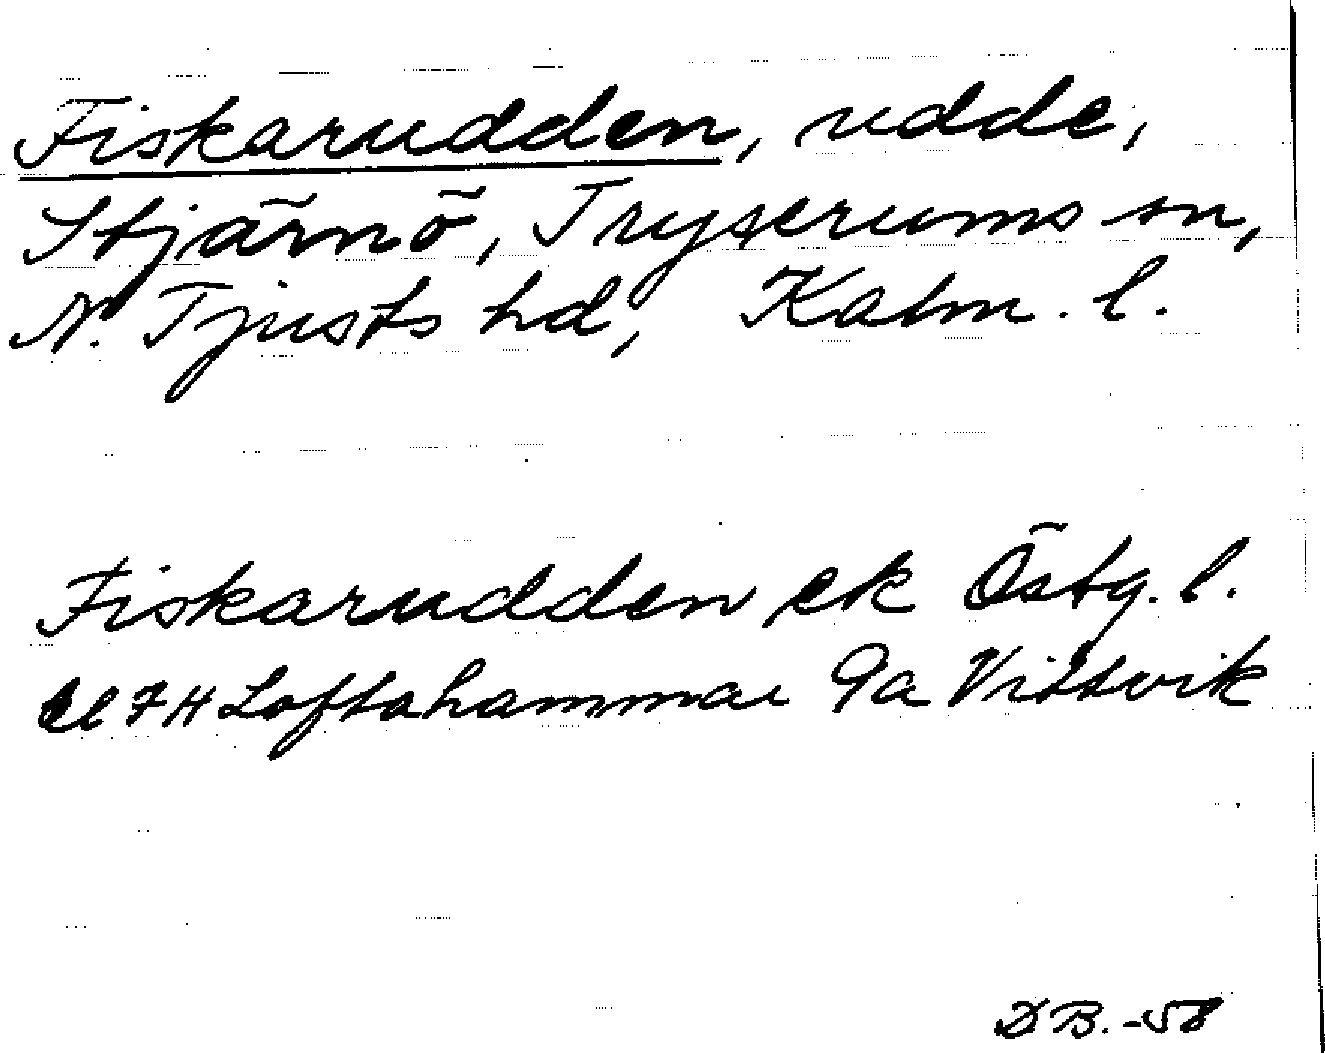 Fiskarudden, udde,
Stjärnö, Tryserums sn,
N. Tjusts hd, Kalm. l.
Fiskarudden ek Östg. l.
7H Loftahammar 9a Vittvik
DB.-58